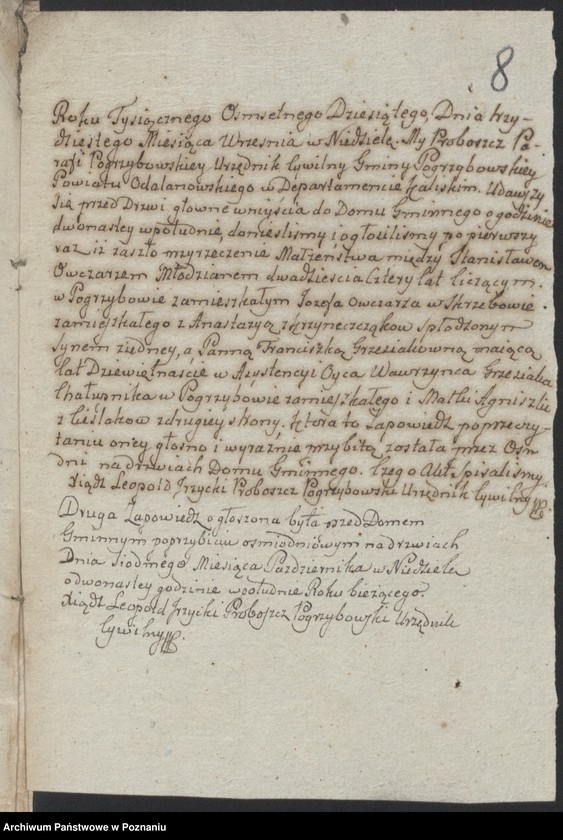 8
Roku Tysiącznego Osmsetnego Dziesiątego, Dnia trzy-
dziestego Miesiąca Wrzesnia w Niedzielę. My Proboszcz Pa-
rafi Pogrzybowskiey Urzędnik Cywilny Gminy Pogrzybowskiey
Powiatu Odalanowskiego w Departamencie Kaliskim. Udawszy
się przed Drzwi głowne wniyścia do Domu Gminnego o godzinie
dwonastey wpołudnie, donieslismy i ogłosilismy po pierwszy
raz iż zaszło przyrzeczenie Małzenstwa między Stanisławem
Owczarzem Młodzianem dwadziescia Cztery lat liczącym.
w Pogrzybowie zamieszkałym Jozefa Owczarza w Skrzebowie
zamieszkałego z Anastazyą spłodzonym
synem ziedney, a Panną Franciszką Grzesiakowną maiącą
lat Dziewiętnaście w Assystencyi Oyca Wawrzynca Grzesiaka
Chałupnika w Pogrzybowie zamieszkałego i Matki Agniszki
z Cieslakow zdrugiey strony. Ktora to Zapowiedź po przeczy-
taniu oney głosno i wyraznie przybitą została przez Osm
dni na drzwiach Domu Gminnego. Czego Akt spisalismy.
Xiądz Leopold Jrzycki Proboszcz Pogrzybowski Urzędnik Cywilny
Druga Zapowiedź ogłoszona była przed Domem
Gminnym po przybiciu osmiodniowym na drzwiach
Dnia siodmego Miesiąca Pazdziernika w Niedzielę
o dwonastey godzinie wpołudnie Roku bieżącego.
Xiądz Leopold Jrzycki Proboszcz Pogrzybowski Urzędnik
Cywilny
Archiwum Państwowe w Poznaniu